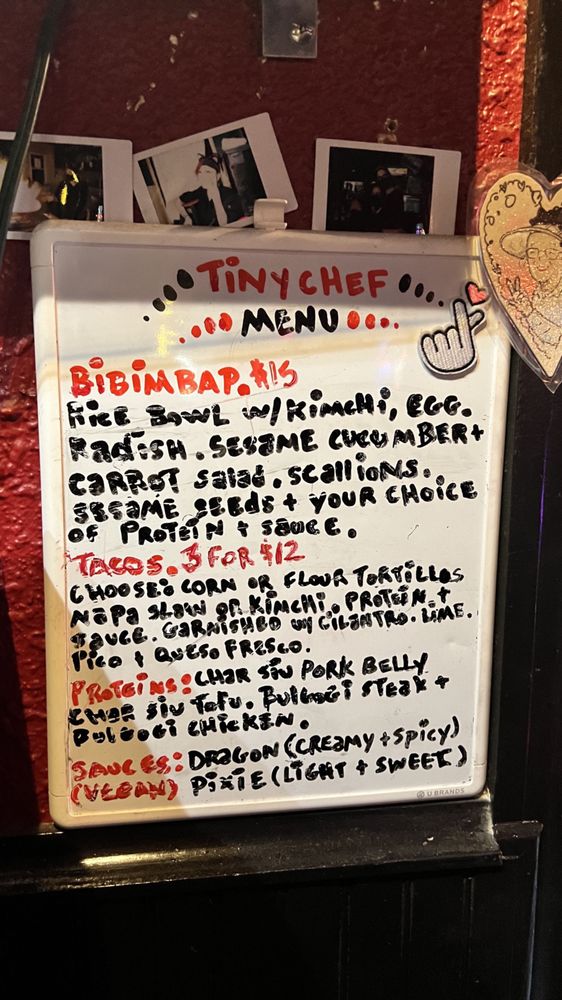 TiNY CHEF
MENU
BiBiMBAP. $15
RiCE BOWL W/KiMCHi, EGG.
RaDiSH. SESAME CUCUMBER+
CARROT SaLaD. SCALLiONS.
SESAME SEEDS + YOUR CHOiCE
OF PROTEiN + SaUCE.
TACOS. 3 FOR $12
CHOOSE: CORN OR FLOUR TORTiLLaS
NaPa SLaW OR KiMCHi. PROTEiN. +
SaUCE. GARNiSHED W/ CiLANTRO. LiME.
PiCO + QUESO FRESCO.
PROTEiNS: CHaR SiU PORK BELLY
CHaR SiU TOFU. BULGOGi STEaK +
BULGOGi CHiCKEN.
SAUCES: DRAGON (CREaMY + SPiCY)
(VEGAN) PiXiE (LiGHT + SWEET)
U BRANDS